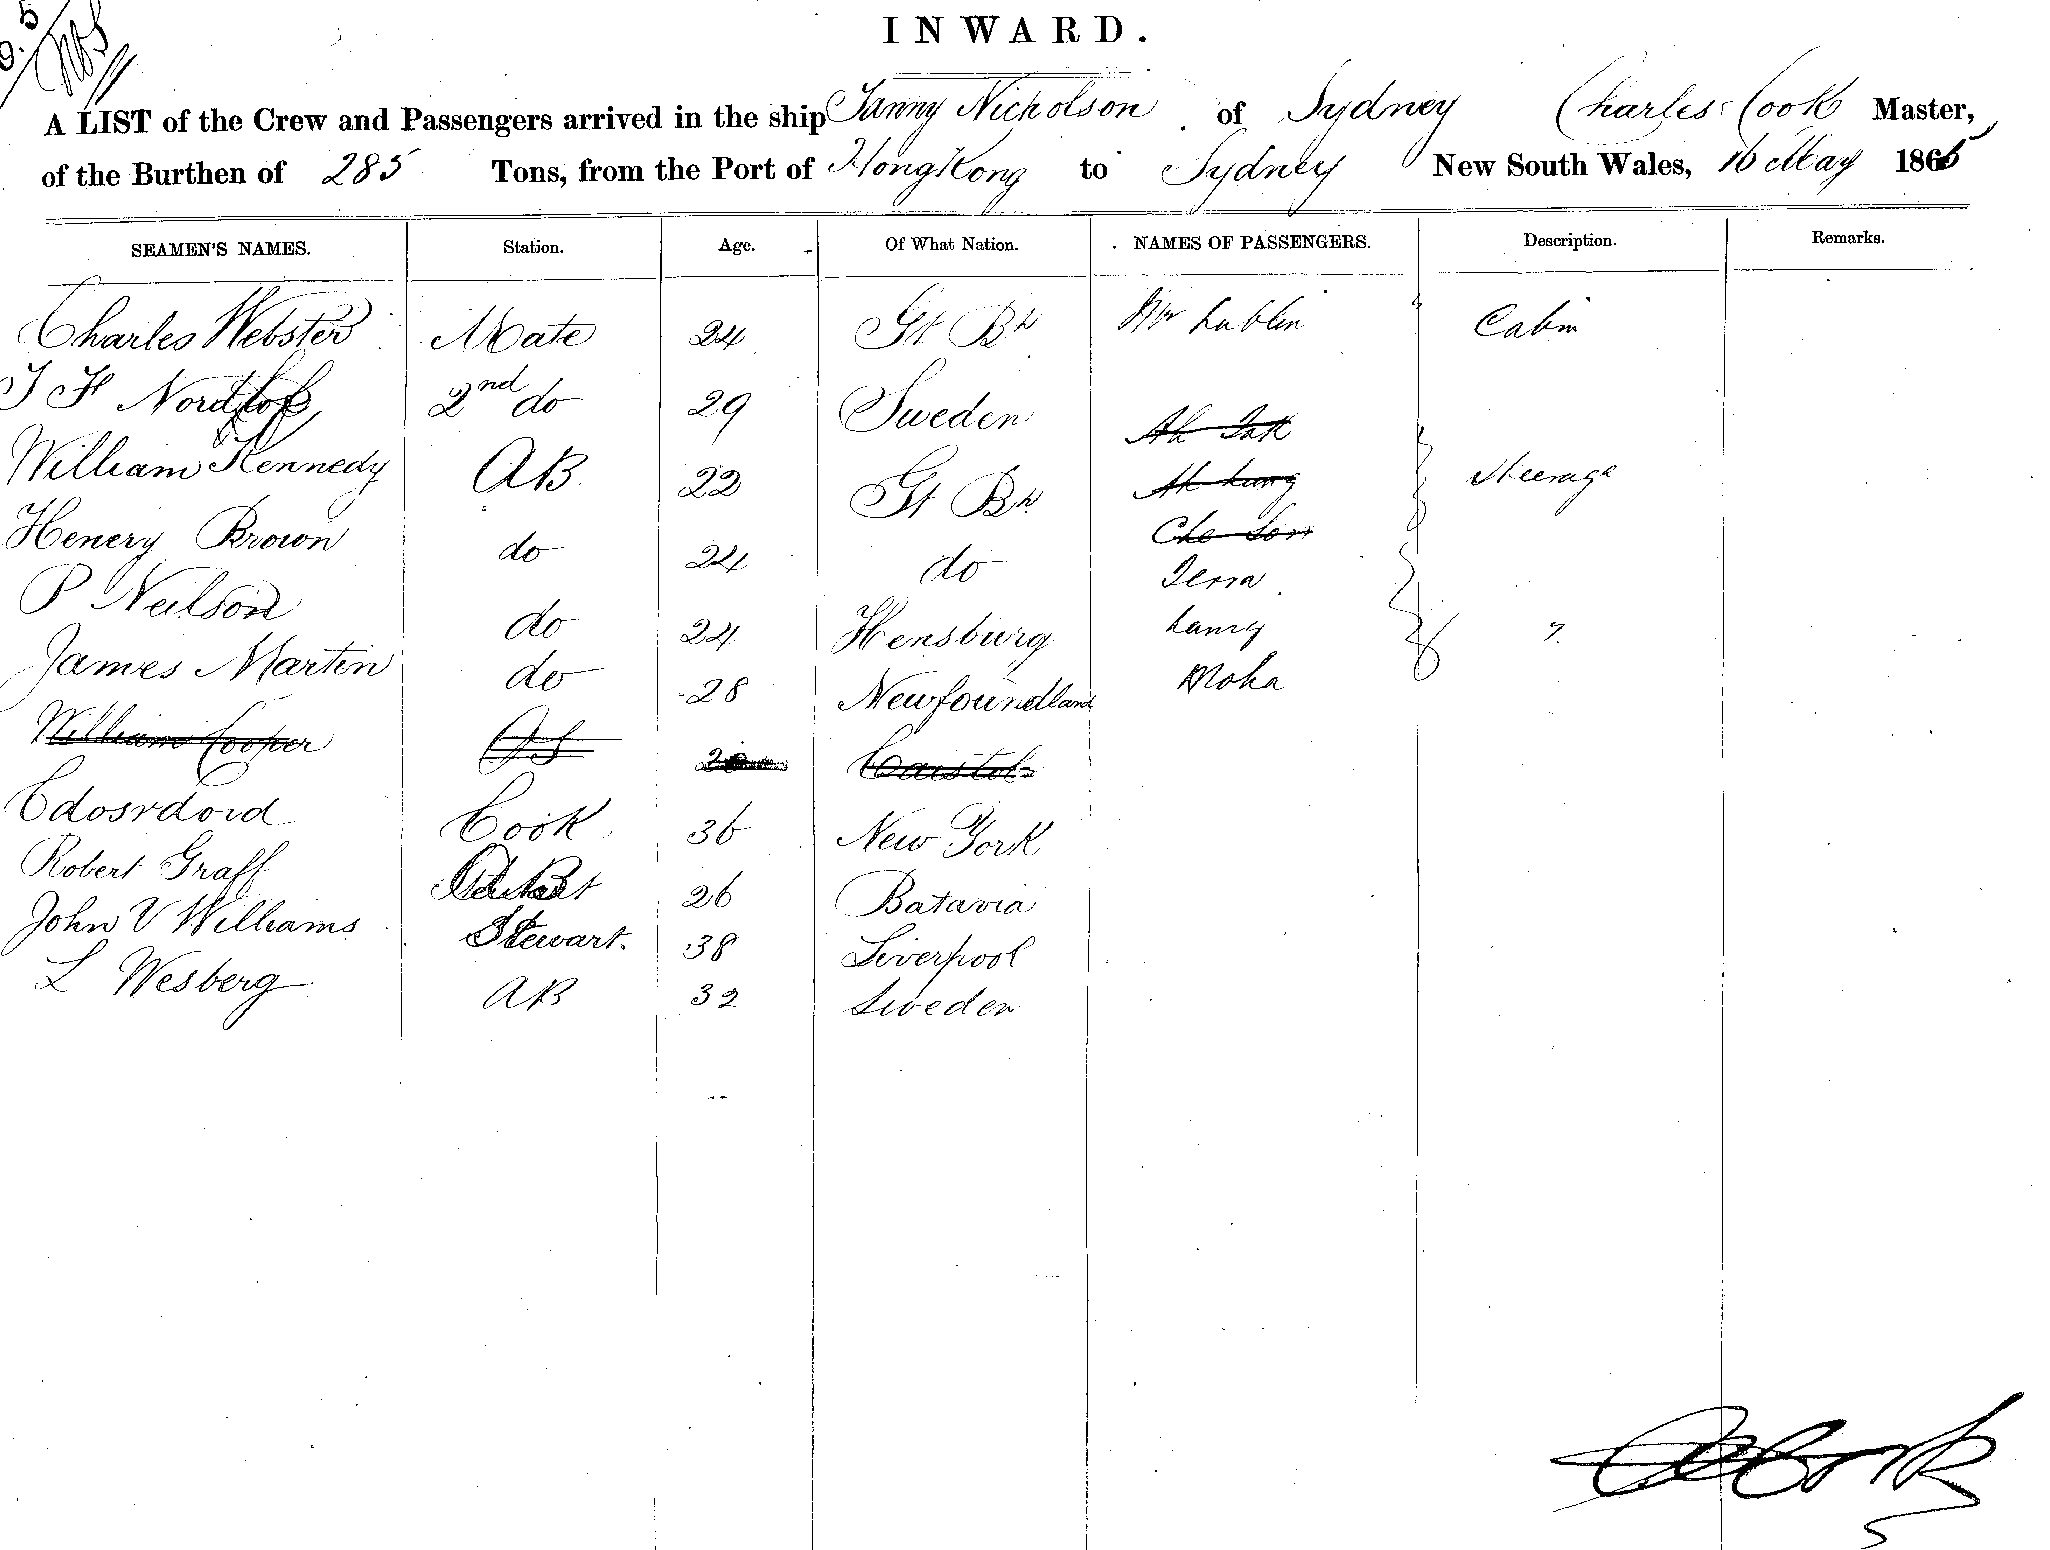 INWARD.
A LIST of the Crew and Passengers arrived in the ship Fanny Nicholson of Sydney Charles Cook Master,
of the Burthen of 285 Tons, from the Port of HongKong to Sydney New South Wales, 16 May 1865
SEAMEN'S NAMES. Station. Age. Of What Nation. NAMES OF PASSENGERS. Description. Remarks.
Charles Webster Mate 24 Gt Bn Mr Lublin Cabin
2nd do 29 Sweden
William Kennedy AB 22 Gt Bn Steerage
Henery Brown do 24 do
P Neilson do 24 Hensburg
James Martin do 28 Newfoundland Moha
William Cooper OS
Cook 36 New York
Robert Graff 26 Batavia
John V Williams Stewart. 38 Liverpool
L Wesberg AB 32 Sweden